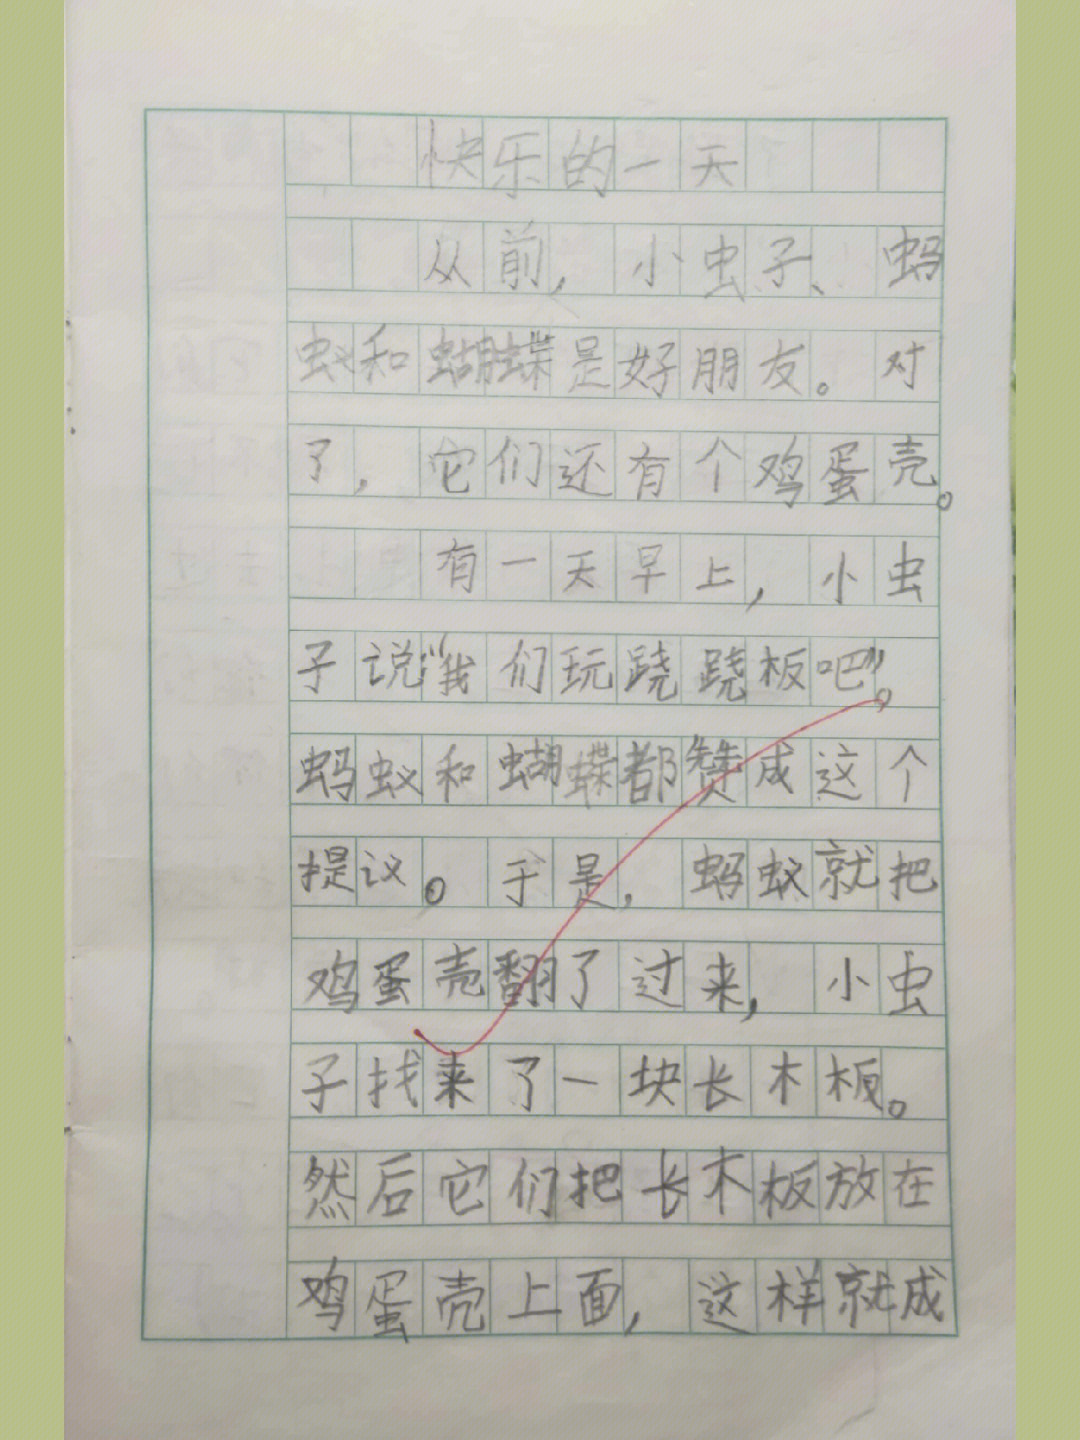 快乐的一天
从前，小虫子、蚂
蚁和蝴蝶是好朋友。对
了，它们还有个鸡蛋壳。
有一天早上，小虫
子说：“我们玩跷跷板吧”。
蚂蚁和蝴蝶都赞成这个
提议。于是，蚂蚁就把
鸡蛋壳翻了过来，小虫
子找来了一块长木板。
然后它们把长木板放在
鸡蛋壳上面，这样就成